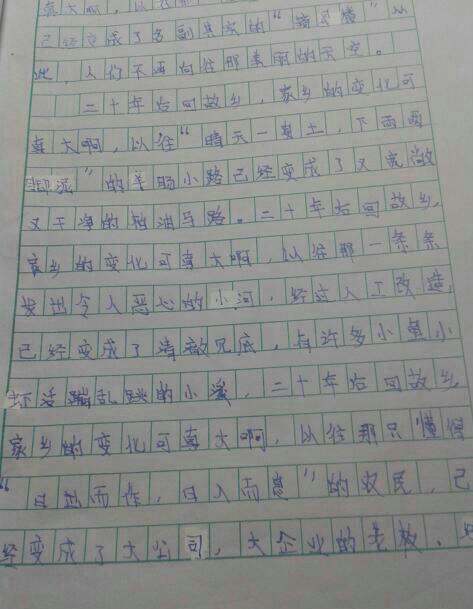 真大啊，以往
已经变成了名副其实的“
此，人们不再向往那美丽的天空。
二十年后回故乡，家乡的变化可
真大啊，以往“晴天一身土，下雨两
脚泥”的羊肠小路已经变成了又宽敞
又干净的柏油马路。二十年后回故乡，
家乡的变化可真大啊，以往那一条条
发出令人恶心的小河，经过人工改造，
已经变成了清澈见底，有许多小鱼小
虾活蹦乱跳的小溪，二十年后回故乡，
家乡的变化可真大啊，以往那只懂得
“日出而作，日入而息”的农民，已
经变成了大公司，大企业的老板，